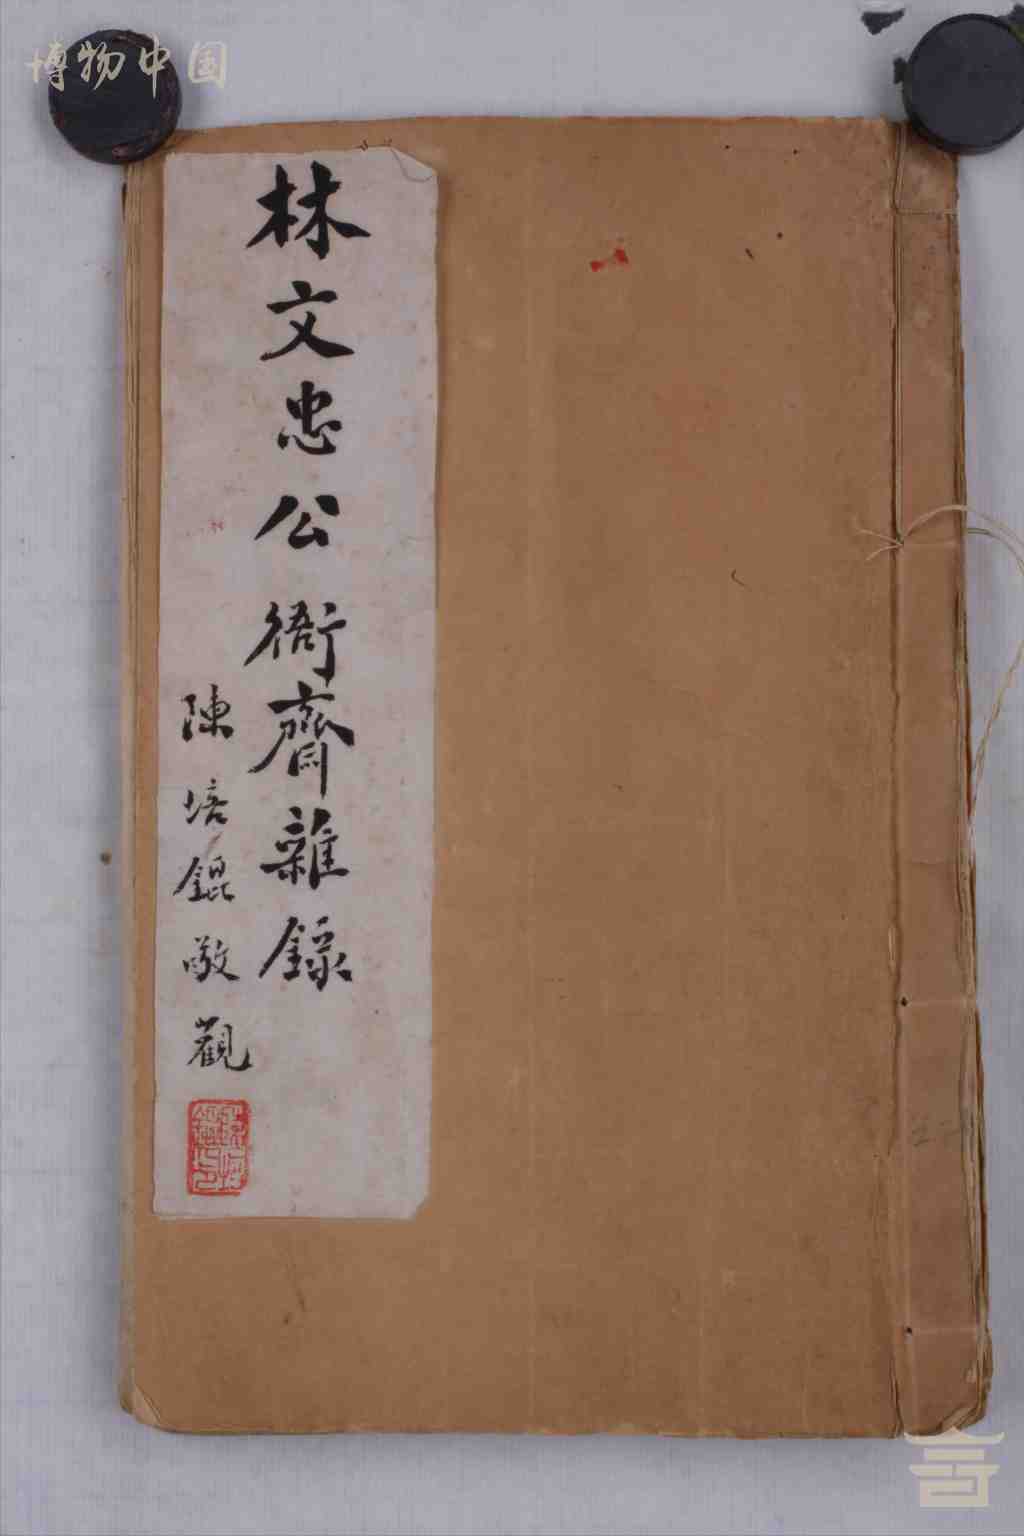 博物中国
林文忠公衙齋雜錄
陳培錕敬觀